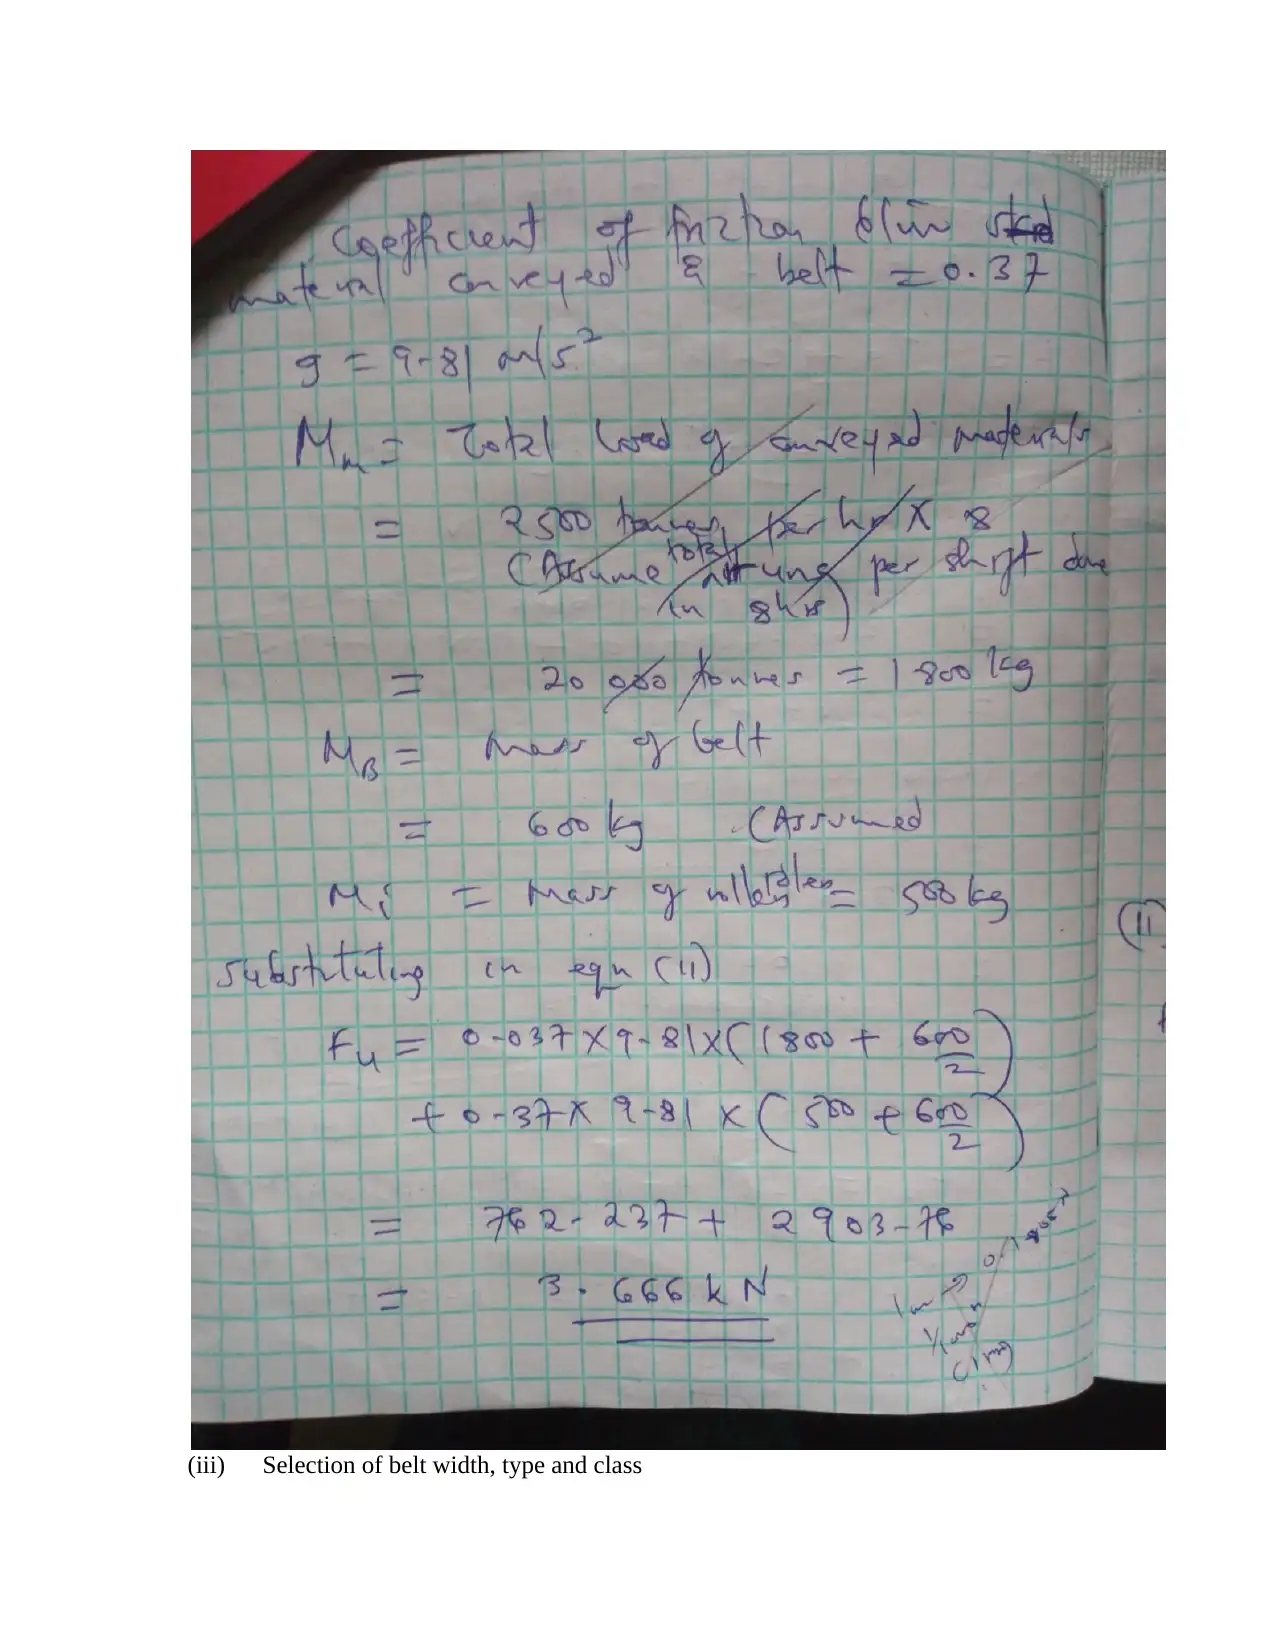 Coefficient of friction b/w
material conveyed & belt = 0.37
g = 9.81 m/s²
Mm = Total load of conveyed materials
= 2500 tonnes per hr X 8
(Assume total per shift done
in 8hrs)
= 20 000 tonnes = 1800 kg
MB = Mass of belt
= 600 kg (Assumed
Mi = Mass of rollers = 500 kg
Substituting in eqn (ii)
Fu = 0.037 X 9.81 X (1800 + 600/2)
+ 0.37 X 9.81 X (500 + 600/2)
= 762.237 + 2903.76
= 3.666 kN
(11
(iii) Selection of belt width, type and class